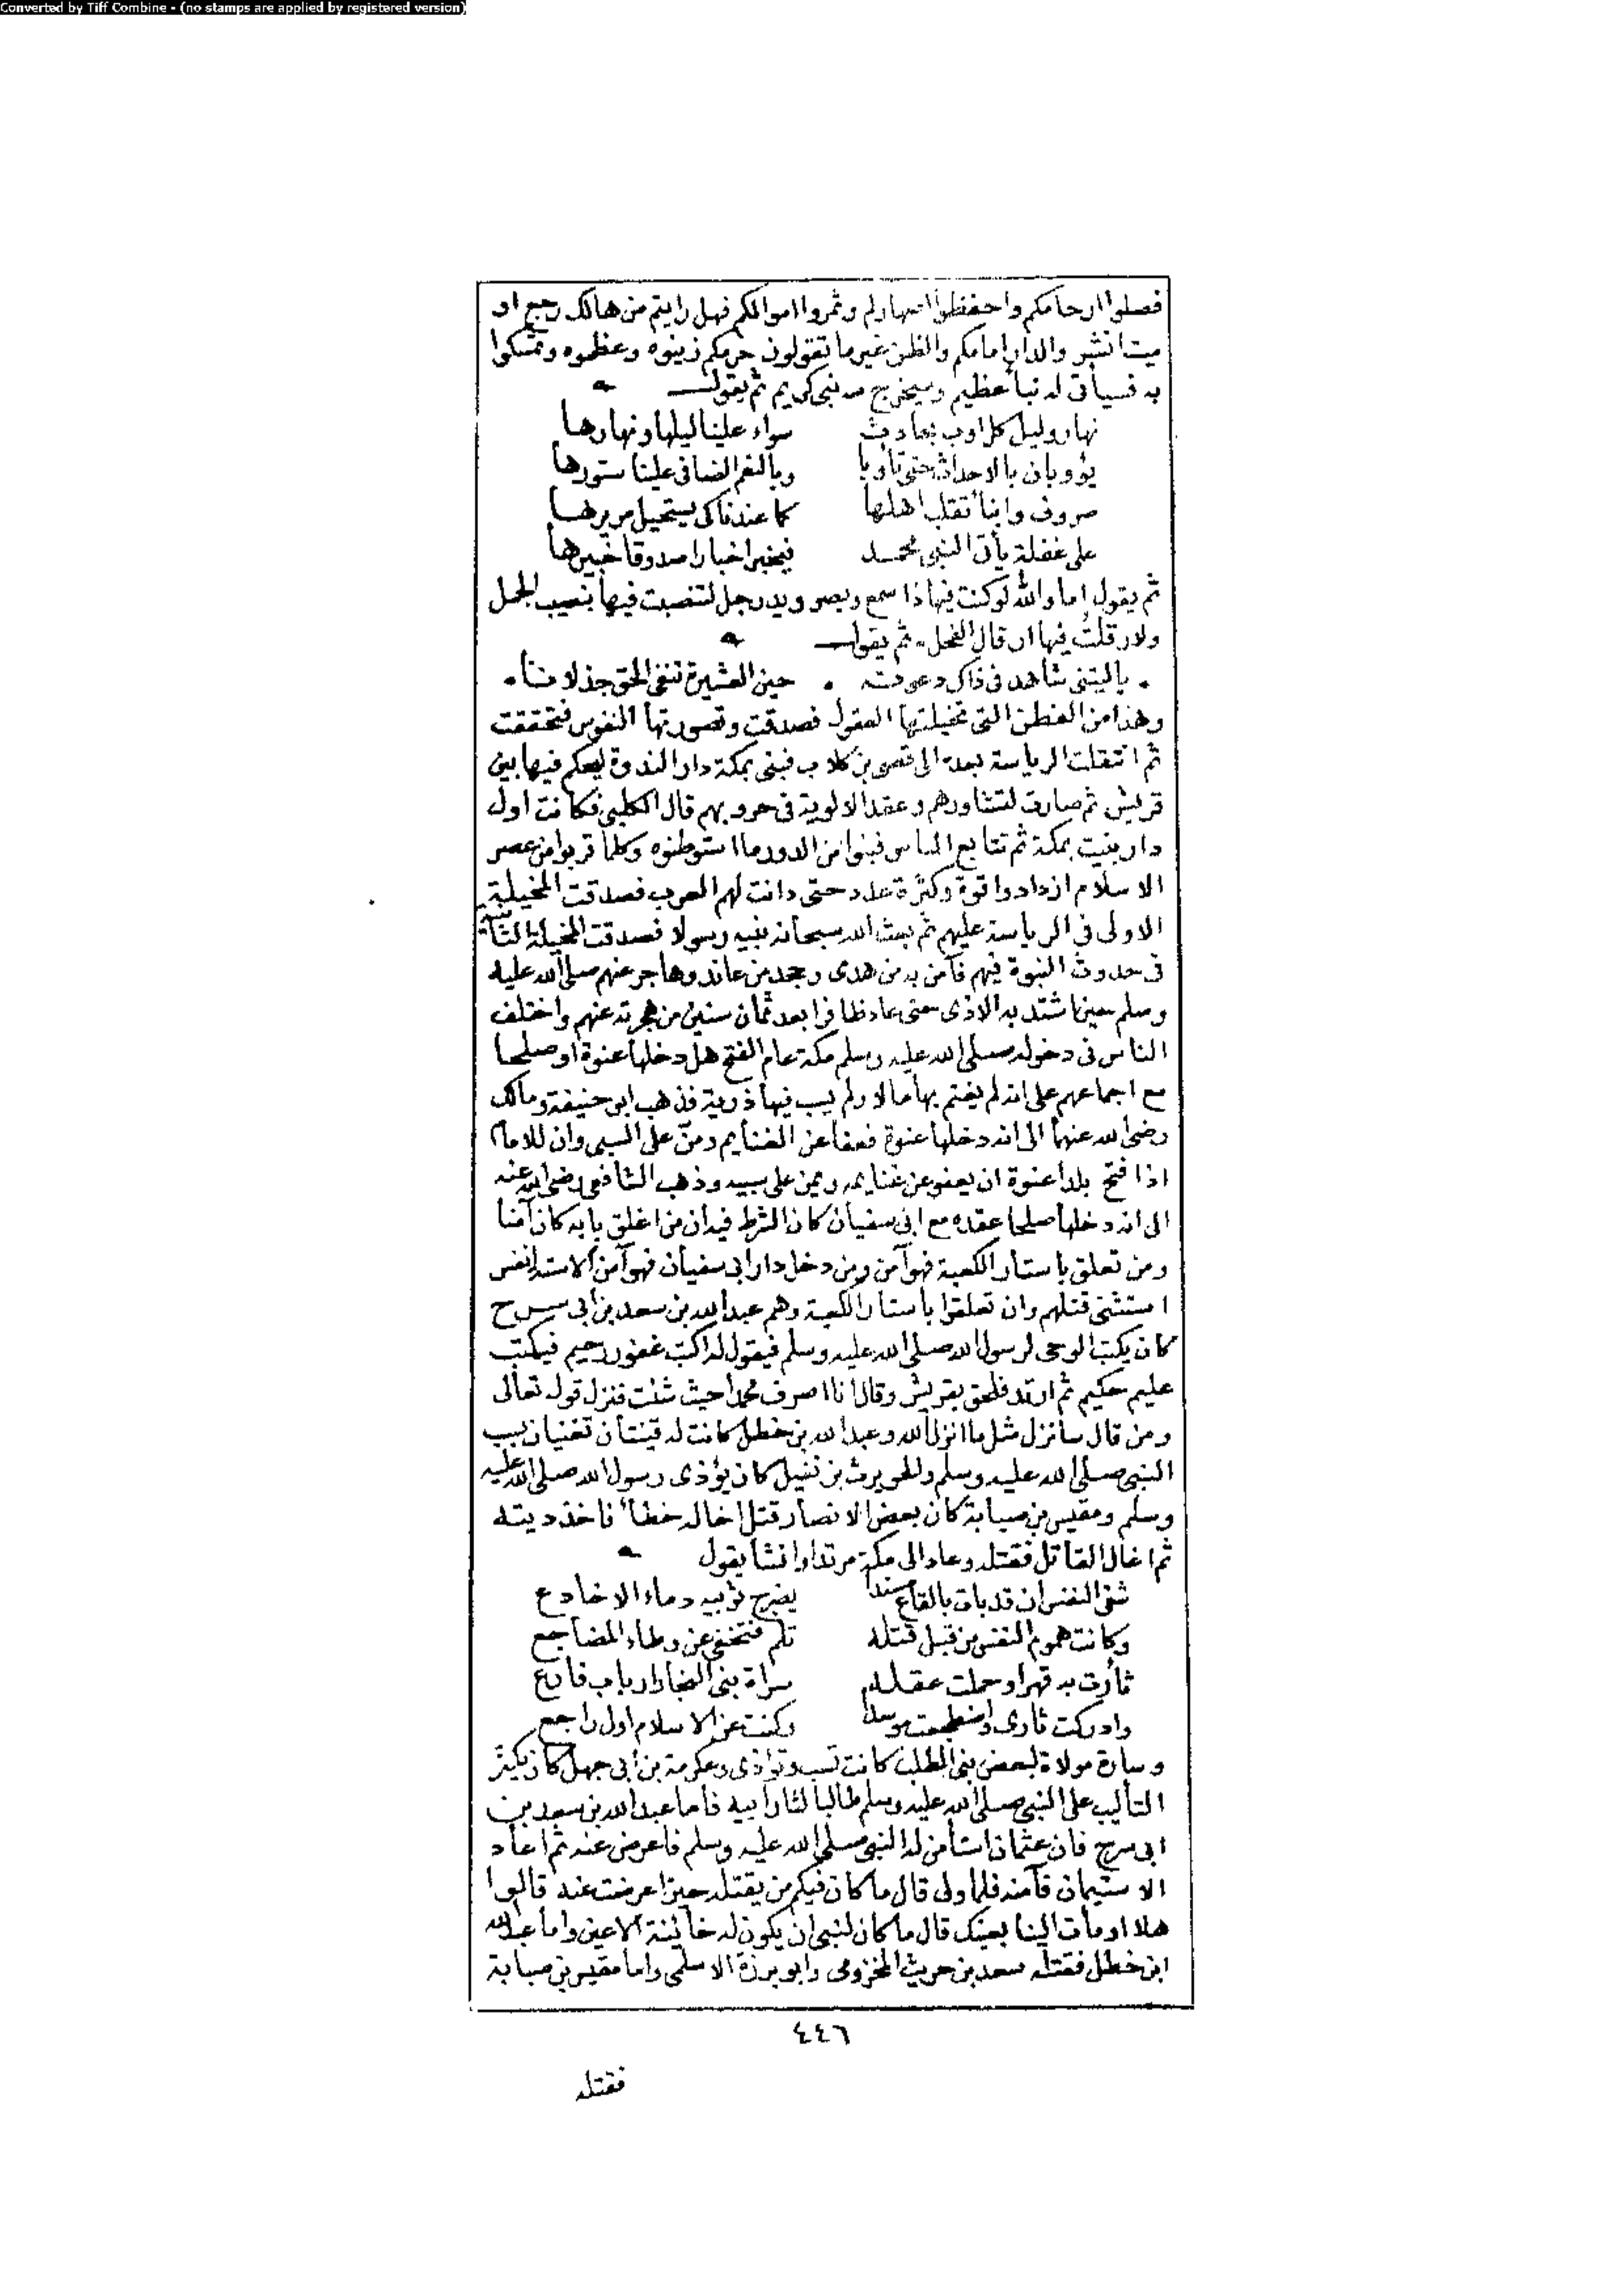 Converted by Tiff Combine - (no stamps are applied by registered version)
فصلوا ارحامكم واحفظوا اصهاركم وثمروا اموالكم فهل رايتم من هالك رجع او
ميتا نشر والدار امامكم والظن غير ما تقولون حرمكم زينوه وعظموه وتمسكوا
به فسيأتى له نبأ عظيم وسيخرج منه نبى كريم ثم يقول
نهار وليل كل اوب بحادث سواء علينا ليلها ونهارها
يؤوبان بالاحداث حتى تأوبا وبالنعم الضافى علينا ستورها
صروف وانباء تقلب اهلها لها عقد ما يستحيل مريرها
على غفلة يأتى النبى محمد فيخبر اخبارا صدوقا خبيرها
ثم يقول اما والله لو كنت فيها ذا سمع وبصر ويد ورجل لتنصبت فيها بنصيب الجمل
ولارقلت فيها ارقال الفحل ثم يقول
ياليتنى شاهد فى ذاك دعوته حين العشيرة تنفى الحق جذلانا
وهذا من الفطن التى تخيلتها العقول فصدقت وتصورتها النفوس فتحققت
ثم انتقلت الرياسة بعده الى قصى بن كلاب فبنى بمكة دار الندوة ليحكم فيها بين
قريش ثم صارت لتشاورهم وعقد الالوية فى حروبهم قال الكلبى فكانت اول
دار بنيت بمكة ثم تتابع الناس فبنوا من الدور ما استوطنوه وكلما قربوا من عصر
الاسلام ازدادوا قوة وكثرة عدد حتى دانت لهم العرب فصدقت المخيلة
الاولى فى الرياسة عليهم ثم بعث الله سبحانه نبيه رسولا فصدقت المخيلة الثانية
فى حدوث النبوة فيهم فآمن به من هدى وجحد من عاند وهاجر عنهم صلى الله عليه
وسلم حين اشتد به الاذى حتى عاد ظافرا بعد ثمان سنين من هجرته عنهم واختلف
الناس فى دخوله صلى الله عليه وسلم مكة عام الفتح هل دخلها عنوة او صلحا
مع اجماعهم على انه لم يغنم بها مالا ولم يسب فيها ذرية فذهب ابو حنيفة ومالك
رضى الله عنهما الى انه دخلها عنوة فعفا عن الغنايم ومن على السبى وان للامام
اذا فتح بلدا عنوة ان يعفو عن غنايمه ويمن على سبيه وذهب الشافعى رضى الله عنه
الى انه دخلها صلحا عقده مع ابى سفيان كان الشرط فيه ان من اغلق بابه كان آمنا
ومن تعلق باستار الكعبة فهو آمن ومن دخل دار ابى سفيان فهو آمن الا ستة انفس
استثنى قتلهم وان تعلقوا باستار الكعبة وهم عبدالله بن سعد بن ابى سرح
كان يكتب الوحى لرسول الله صلى الله عليه وسلم فيقول له اكتب غفور رحيم فيكتب
عليم حكيم ثم ارتد فلحق بقريش وقال انا اصرف محمدا حيث شئت فنزل قوله تعالى
ومن قال سانزل مثل ما انزل الله وعبدالله بن خطل كانت له قينتان تغنيان بسب
النبى صلى الله عليه وسلم والحويرث بن نفيل كان يؤذى رسول الله صلى الله عليه
وسلم ومقيس بن صبابة كان بعض الانصار قتل اخا له خطأ فاخذ ديته
ثم اغال القاتل فقتله وعاد الى مكة مرتدا وانشأ يقول
شفى النفس ان قد بات بالقاع مسندا يضرج ثوبيه دماء الاخادع
وكانت هموم النفس من قبل قتله تلم فتحنفى عن وطاء المضاجع
ثأرت به قهرا وحملت عقله سراة بنى النجار ارباب فارع
وادركت ثارى واضطجعت موسدا وكنت عن الاسلام اول راجع
وسارة مولاة لبعض بنى المطلب كانت تسب وتؤذى وعكرمة بن ابى جهل كان يكثر
التأليب على النبى صلى الله عليه وسلم طالبا لثار ابيه فاما عبدالله بن سعد بن
ابى سرح فان عثمان استأمن له النبى صلى الله عليه وسلم فاعرض عنه ثم اعاد
الاستيمان فآمنه فلما ولى قال ما كان فيكم من يقتله حين اعرضت عنه قالوا
هلا اومأت الينا بعينك قال ما كان لنبى ان يكون له خائنة الاعين واما عبدالله
ابن خطل فقتله سعد بن حريث المخزومى وابو برزة الاسلمى واما مقيس بن صبابة
٤٤٦
فقتله